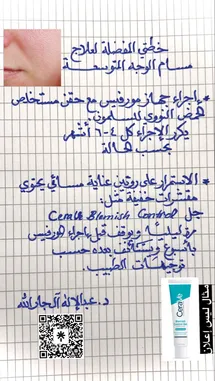 خطتي المفضلة لعلاج
مسام الوجه المتوسعة
* إجراء جهاز مورفيس مع حقن مستخلص
الحمض النووي للسلمون.
يكرر الإجراء كل ٤-٦ أشهر
بحسب الحالة
* الاستمرار على روتين عناية مسائي يحتوي
مقشرات خفيفة مثل:
جل CeraVe Blemish Control
مرة ليليا ويوقف قبل إجراء المورفيس
بأسبوع ويستأنف بعده حسب
توجيهات الطبيب.
د. عبدالإله الجارالله
مثال ليس إعلان
CeraVe